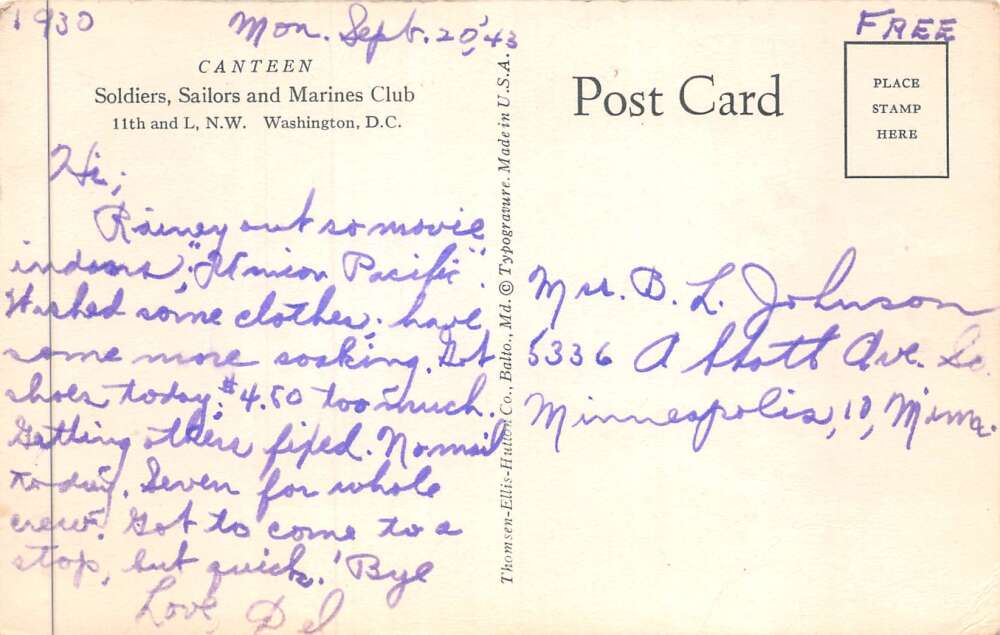 1930 Mon. Sept. 20, '43
CANTEEN
Soldiers, Sailors and Marines Club
11th and L, N.W. Washington, D.C.
Hi;
Rainey out so movie
indoors, "Union Pacific".
Washed some clothes; have
some more soaking. Got
shoes today; $4.50 too much.
Getting others fixed. No mail
today. Seven for whole
crew. Got to come to a
stop, but quick! Bye
Love, Del
Thomsen-Ellis-Hutton Co., Balto., Md. © Typogravure. Made in U.S.A.
Post Card
FREE
PLACE
STAMP
HERE
Mrs. B. L. Johnson
5336 Abbott Ave. So.
Minneapolis, 10, Minn.